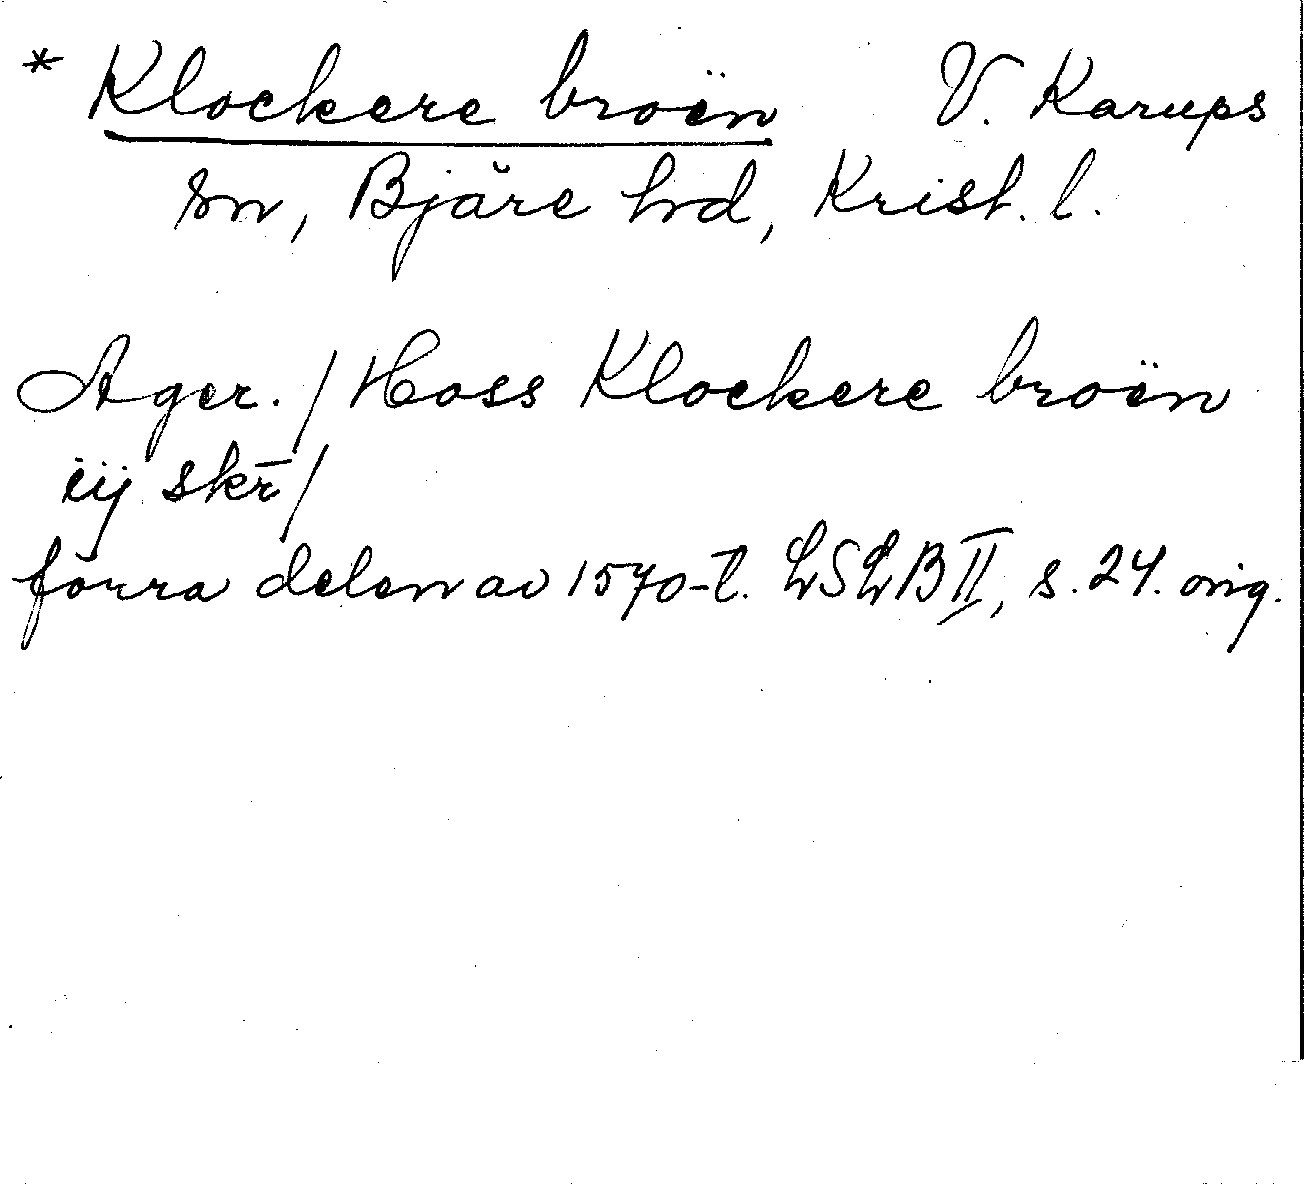 * Klockere broën V. Karups
sn, Bjäre hd, Krist. l.
Ager. / Hoss Klockere broën
iij skr̄ /
förra delen av 1570-t. LSLB II, s. 24. orig.